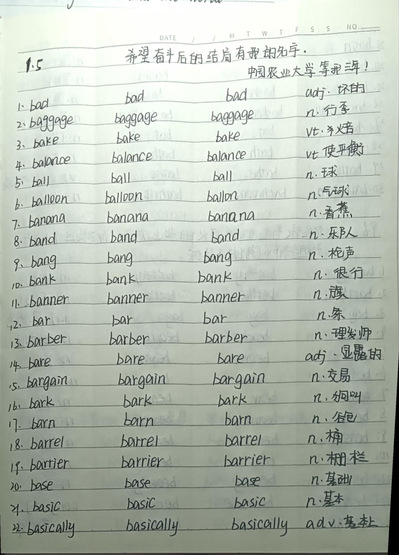 DATE / / M T W T F S S NO.
1.5 希望奋斗后的结局有我的名字.
中国农业大学等我三年!
1. bad bad bad adj. 坏的
2. baggage baggage baggage n. 行李
3. bake bake bake vt. 烘焙
4. balance balance balance vt 使平衡
5. ball ball ball n. 球
6. balloon balloon ballon n. 气球
7. banana banana banana n. 香蕉
8. band band band n. 乐队
9. bang bang bang n. 枪声
10. bank bank bank n. 银行
11. banner banner banner n. 旗
12. bar bar bar n. 条
13. barber barber barber n. 理发师
14. bare bare bare adj. 显露的
15. bargain bargain bargain n. 交易
16. bark bark bark n. 狗叫
17. barn barn barn n.
18. barrel barrel barrel n. 桶
19. barrier barrier barrier n. 栅栏
20. base base base n. 基础
21. basic basic basic n. 基本
22. basically basically basically adv. 基本上